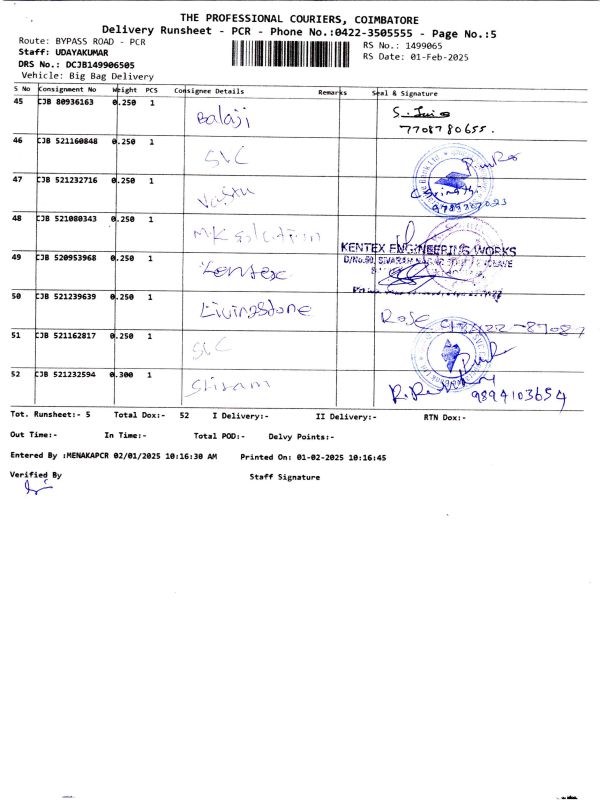 THE PROFESSIONAL COURIERS, COIMBATORE
Delivery Runsheet - PCR - Phone No.:0422-3505555 - Page No.:5
Route: BYPASS ROAD - PCR
RS No.: 1499065
Staff: UDAYAKUMAR
RS Date: 01-Feb-2025
DRS No.: DCJB149906505
Vehicle: Big Bag Delivery
S No Consignment No Weight PCS Consignee Details Remarks Seal & Signature
45 CJB 80936163 0.250 1 Balaji
7708780655.
46 CJB 521160848 0.250 1 SVC
47 CJB 521232716 0.250 1 Vastu
48 CJB 521080343 0.250 1 MK
KENTEX ENGINEERING WORKS
49 CJB 520953968 0.250 1 Kentex
50 CJB 521239639 0.250 1 Livingstone Rose
51 CJB 521162817 0.250 1 SVC
52 CJB 521232594 0.300 1 Sriram
9894103654
Tot. Runsheet:- 5 Total Dox:- 52 I Delivery:- II Delivery:- RTN Dox:-
Out Time:- In Time:- Total POD:- Delvy Points:-
Entered By :MENAKAPCR 02/01/2025 10:16:30 AM Printed On: 01-02-2025 10:16:45
Verified By Staff Signature